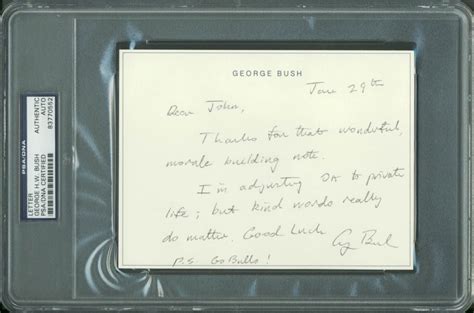 PSA/DNA
LETTER
GEORGE H.W. BUSH
PSA/DNA CERTIFIED
AUTHENTIC
AUTO
83770552
GEORGE BUSH
Jan 29th
Dear John,
Thanks for that wonderful,
morale building note.
I'm adjusting OK to private
life; but kind words really
do matter. Good Luck
G Bush
P.S. Go Bulls!